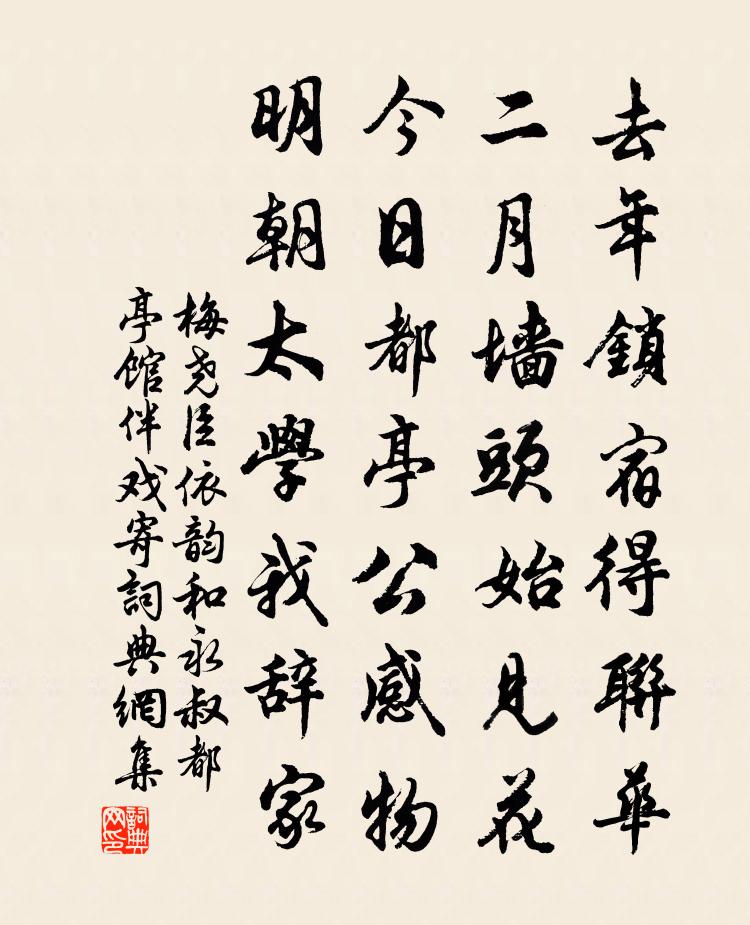 去年鎖宿得聯華
二月墻頭始見花
今日都亭公感物
明朝太學我辞家
梅尧臣依韵和永叔都
亭館伴戏寄詞典網集
詞典
网印